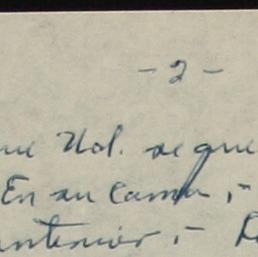 - 2 -
que Ud. se que
En su cama, -
anterior, -